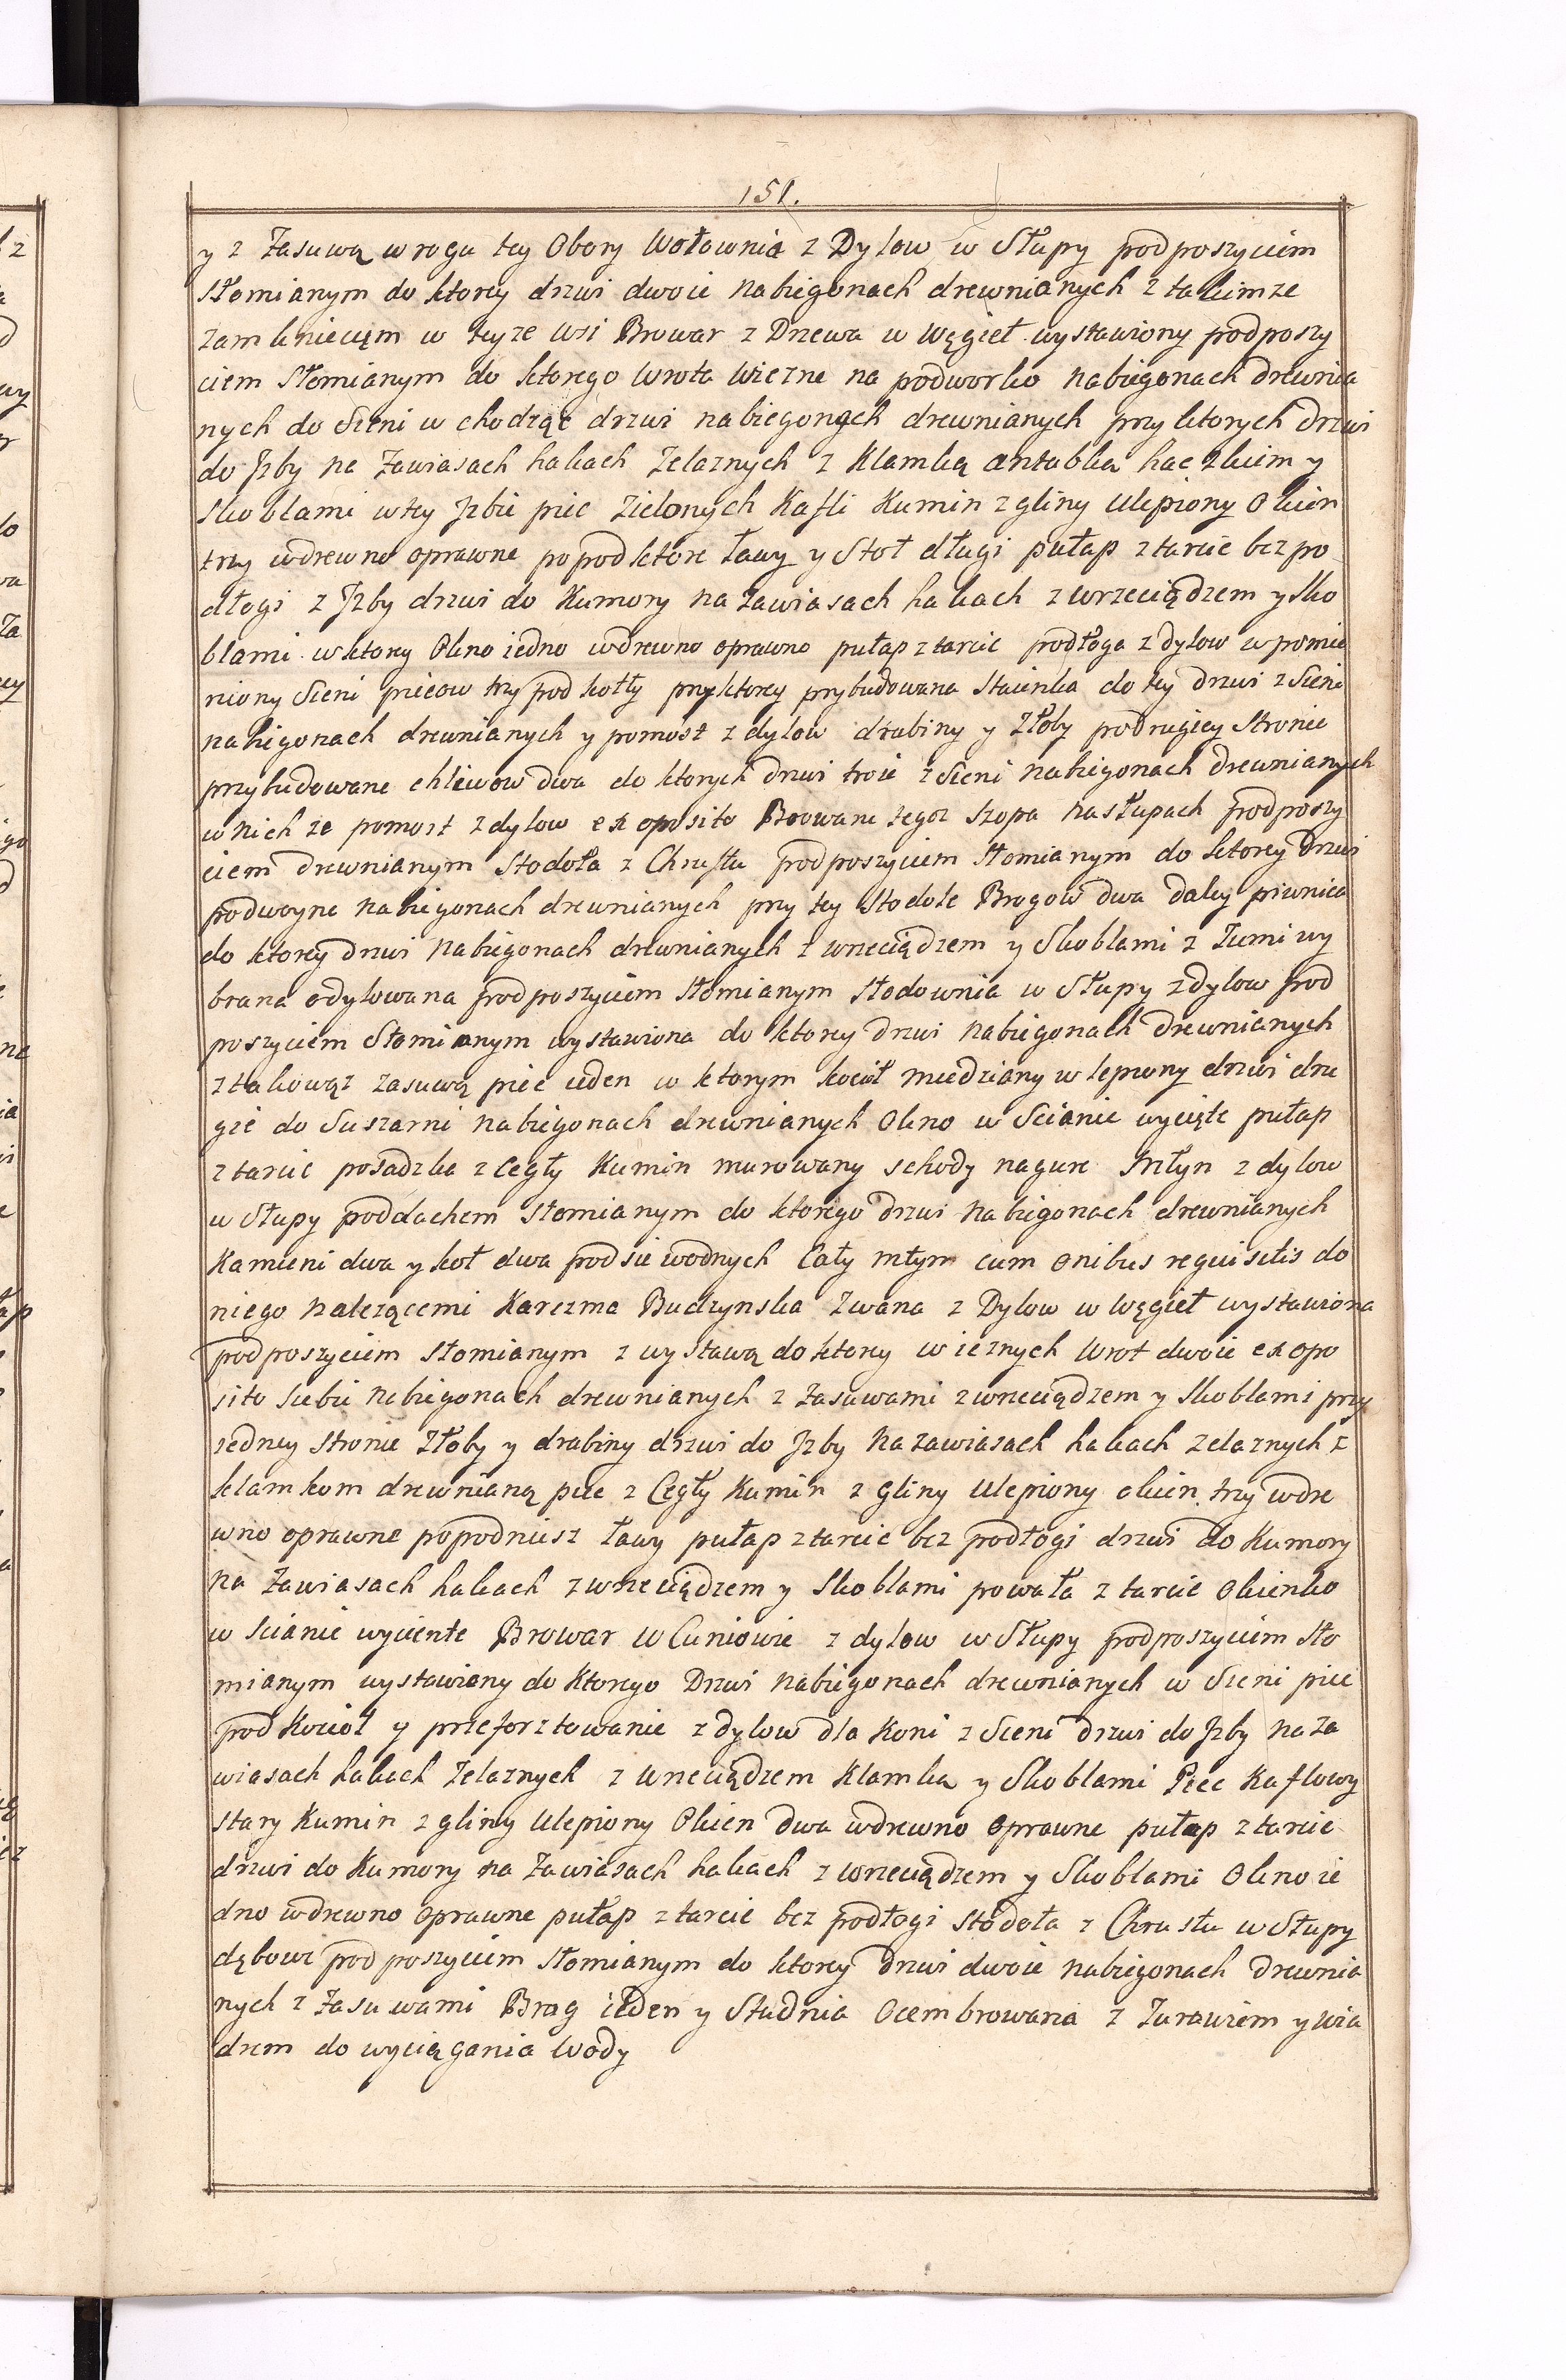 151.
y z Zasuwą w rogu tey Obory Wołownia z Dylow w Słupy pod poszyciem
słomianym do ktorey drzwi dwoie na biegonach drewnianych z takimze
zamknieciem w teyze wsi Browar z Drzewa w Węgieł wystawiony pod poszy
ciem Słomianym do ktorego Wrota Wiezne na podworko na biegonach drewnia
nych do Sieni w chodząc drzwi na biegonach drewnianych przy ktorych drzwi
do Jzby na Zawiasach hakach Zelaznych z Klamką antabką haczkiem y
skoblami w tey Jzbie piec Zielonych Kafli Kumin z gliny Ulepiony Okien
trzy w drewno oprawne popod ktore ławy y Stoł długi pułap z tarcic bez po
dłogi z Jzby drzwi do Kumory na zawiasach hakach z wrzeciądzem y sko
blami w ktorey Okno iedno w drewno oprawno pułap z tarcic podłoga z dylow w pomie
niony Sieni piecow trzy pod kotły przy ktorey przybudowana Staienka do tey drzwi z Sieni
na biegonach drewnianych y pomost z dylow drabiny y Złoby po drugiey Stronie
przybudowane chlewow dwa do ktorych drzwi troie z Sieni na biegonach drewnianych
w nich ze pomost z dylow ex oposito Browaru tegoz Szopa na słupach pod poszy
ciem drewnianym Stodoła z Chrustu pod poszyciem słomianym do ktorey drzwi
podwoyne na biegonach drewnianych przy tey stodole Brogow dwa daley piwnica
do ktorey drzwi na biegonach drewnianych z wrzeciądzem y Skoblami z Ziemi wy
brana odylowana pod poszyciem słomianym słodownia w Słupy z dylow pod
poszyciem Słomianym wystawiona do ktorey drzwi na biegonach drewnianych
z takowąz zasuwą piec ieden w ktorym kocioł miedziany w lepiony drzwi dru
gie do Suszarni na biegonach drewnianych Okno w Scianie wycięte pułap
z tarcic posadzka z Cegły Kumin murowany schody na gure Młyn z dylow
w Słupy pod dachem słomianym do ktorego drzwi na biegonach drewnianych
Kamieni dwa y koł dwa podsie wodnych Cały młyn cum onibus requisitis do
niego nalezącemi Karczma Budzynska Zwana z Dylow w Węgieł wystawiona
pod poszyciem słomianym z wystawą do ktorey wieznych Wrot dwoie ex opo
sito siebie na biegonach drewnianych z zasuwami z wrzeciądzem y Skoblami przy
iedney stronie Złoby y drabiny drzwi do Jzby na zawiasach hakach zelaznych z
klamkom drewnianą piec z Cegły Kumin z gliny Ulepiony okien trzy w dre
wno oprawne popodniesz ławy pułap z tarcic bez podłogi drzwi do Kumory
na Zawiasach hakach z wrzeciądzem y Skoblami powała z tarcic Okienko
w scianie wyciente Browar w Cuniowie z dylow w Słupy pod poszyciem sło
mianym wystawiony do Ktorego Drzwi na biegonach drewnianych w Sieni piec
pod Kocioł y przeforztowanie z dylow dla Koni z Sieni drzwi do Jzby na za
wiasach hakach Zelaznych z wrzeciądzem Klamką y Skoblami Piec Kaflowy
stary Kumin z gliny Ulepiony Okien dwa w drewno Oprawne pułap z tarcic
drzwi do Kumory na Zawiasach hakach z wrzeciądzem y Skoblami Okno ie
dno w drewno Oprawne pułap z tarcic bez podłogi stodoła z Chrustu w Słupy
dębowe pod poszyciem słomianym do ktorey drzwi dwoie na biegonach drewnia
nych z Zasuwami Brag ieden y Studnia Ocembrowana z Zurawiem y wia
drem do wyciągania Wody